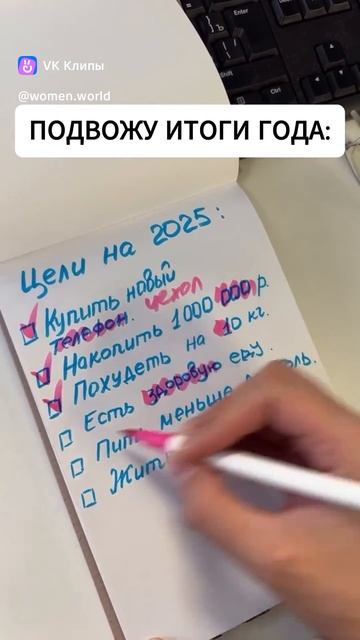 VK Клипы
@women.world
ПОДВОЖУ ИТОГИ ГОДА:
Цели на 2025:
Купить новый
телефон. чехол
Накопить 1000 000 р.
Похудеть на 10 кг.
Есть здоровую еду.
меньше
Enter
Shift
Ctrl